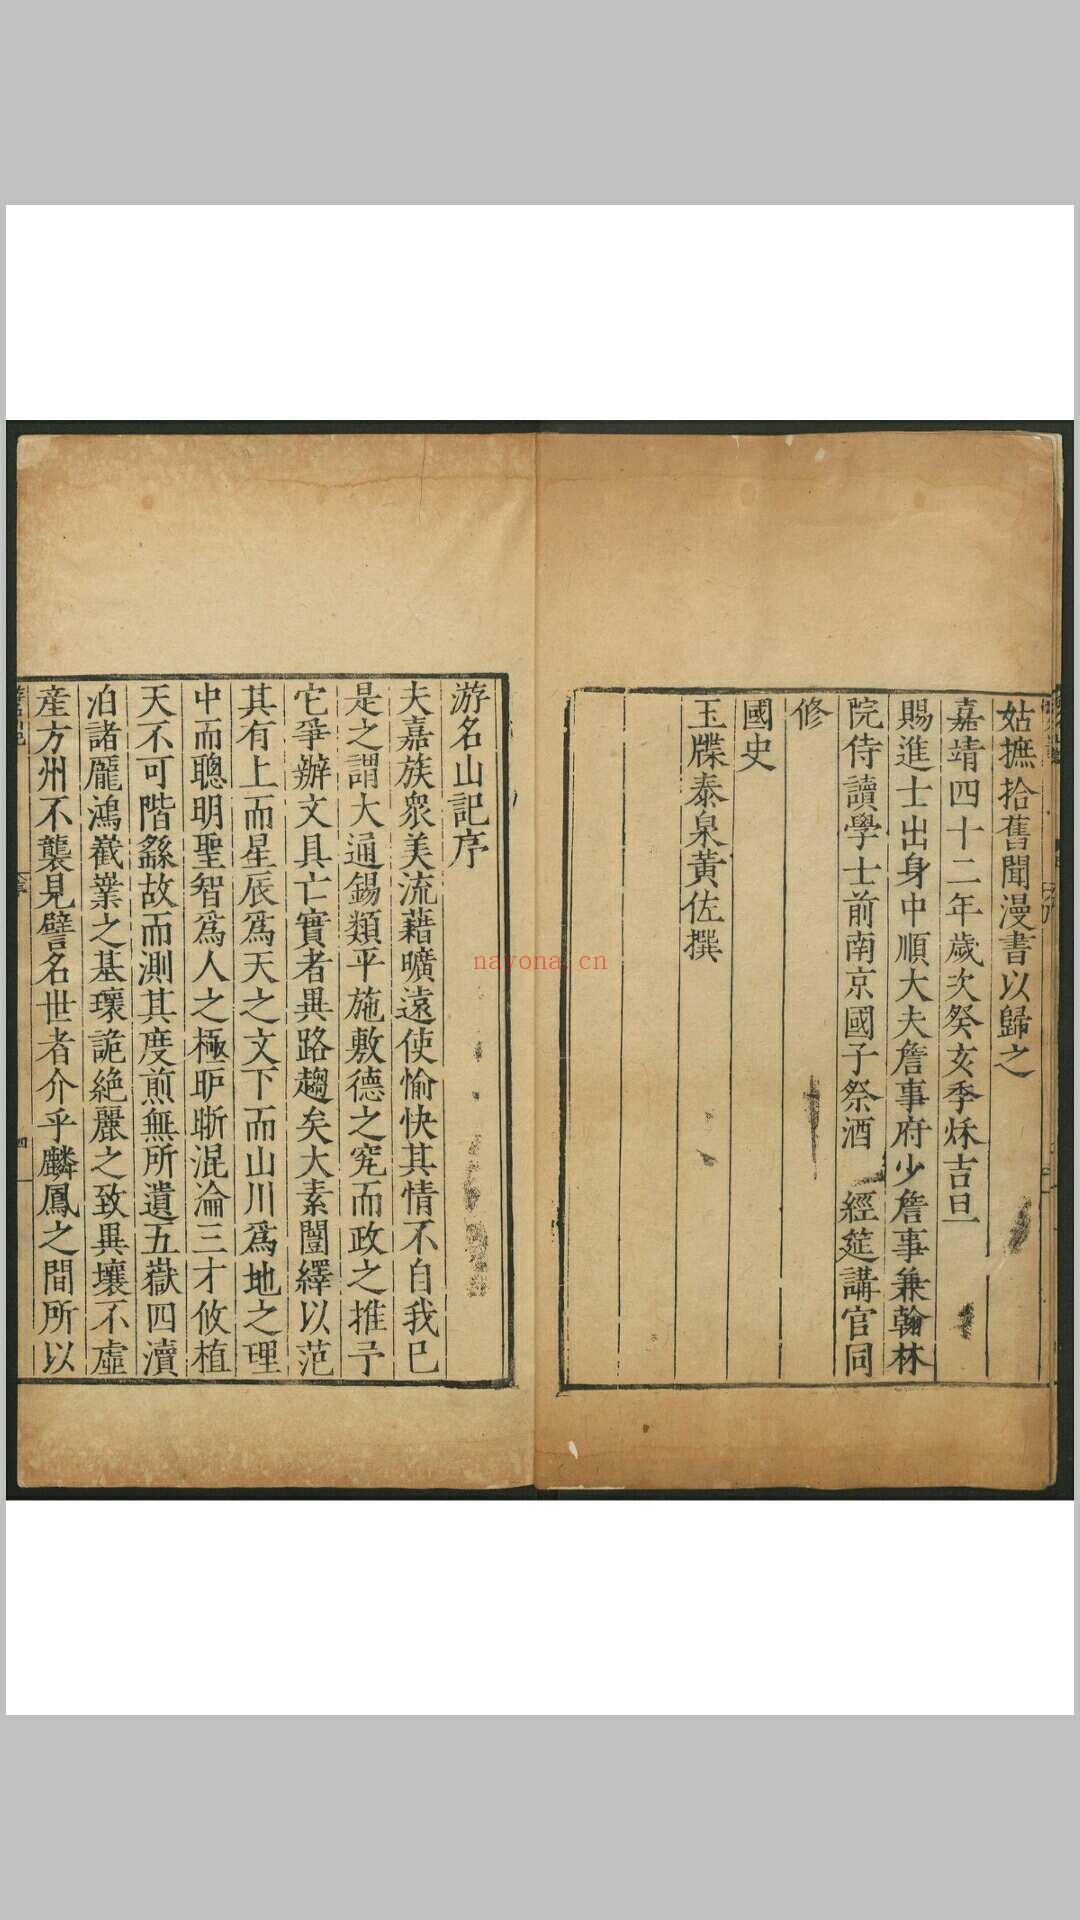 姑摭拾舊聞漫書以歸之
嘉靖四十二年歲次癸亥季秌吉旦
賜進士出身中順大夫詹事府少詹事兼翰林
院侍讀學士前南京國子祭酒 經筵講官同
修
國史
玉牒泰泉黃佐撰
游名山記序
夫嘉族衆美流藉曠遠使愉快其情不自我已
是之謂大通錫類平施敷德之䆒而政之推予
它爭辦文具亡實者異路趨矣大素闓繹以范
其有上而星辰爲天之文下而山川爲地之理
中而聰明聖智爲人之極昈晣混淪三才攸植
天不可階繇故而測其度煎無所遺五嶽四瀆
洎諸龐鴻嶻嶪之基瓌詭絶麗之致異壤不虛
産方州不襲見譬名世者介乎麟鳳之間所以
nayona.cn